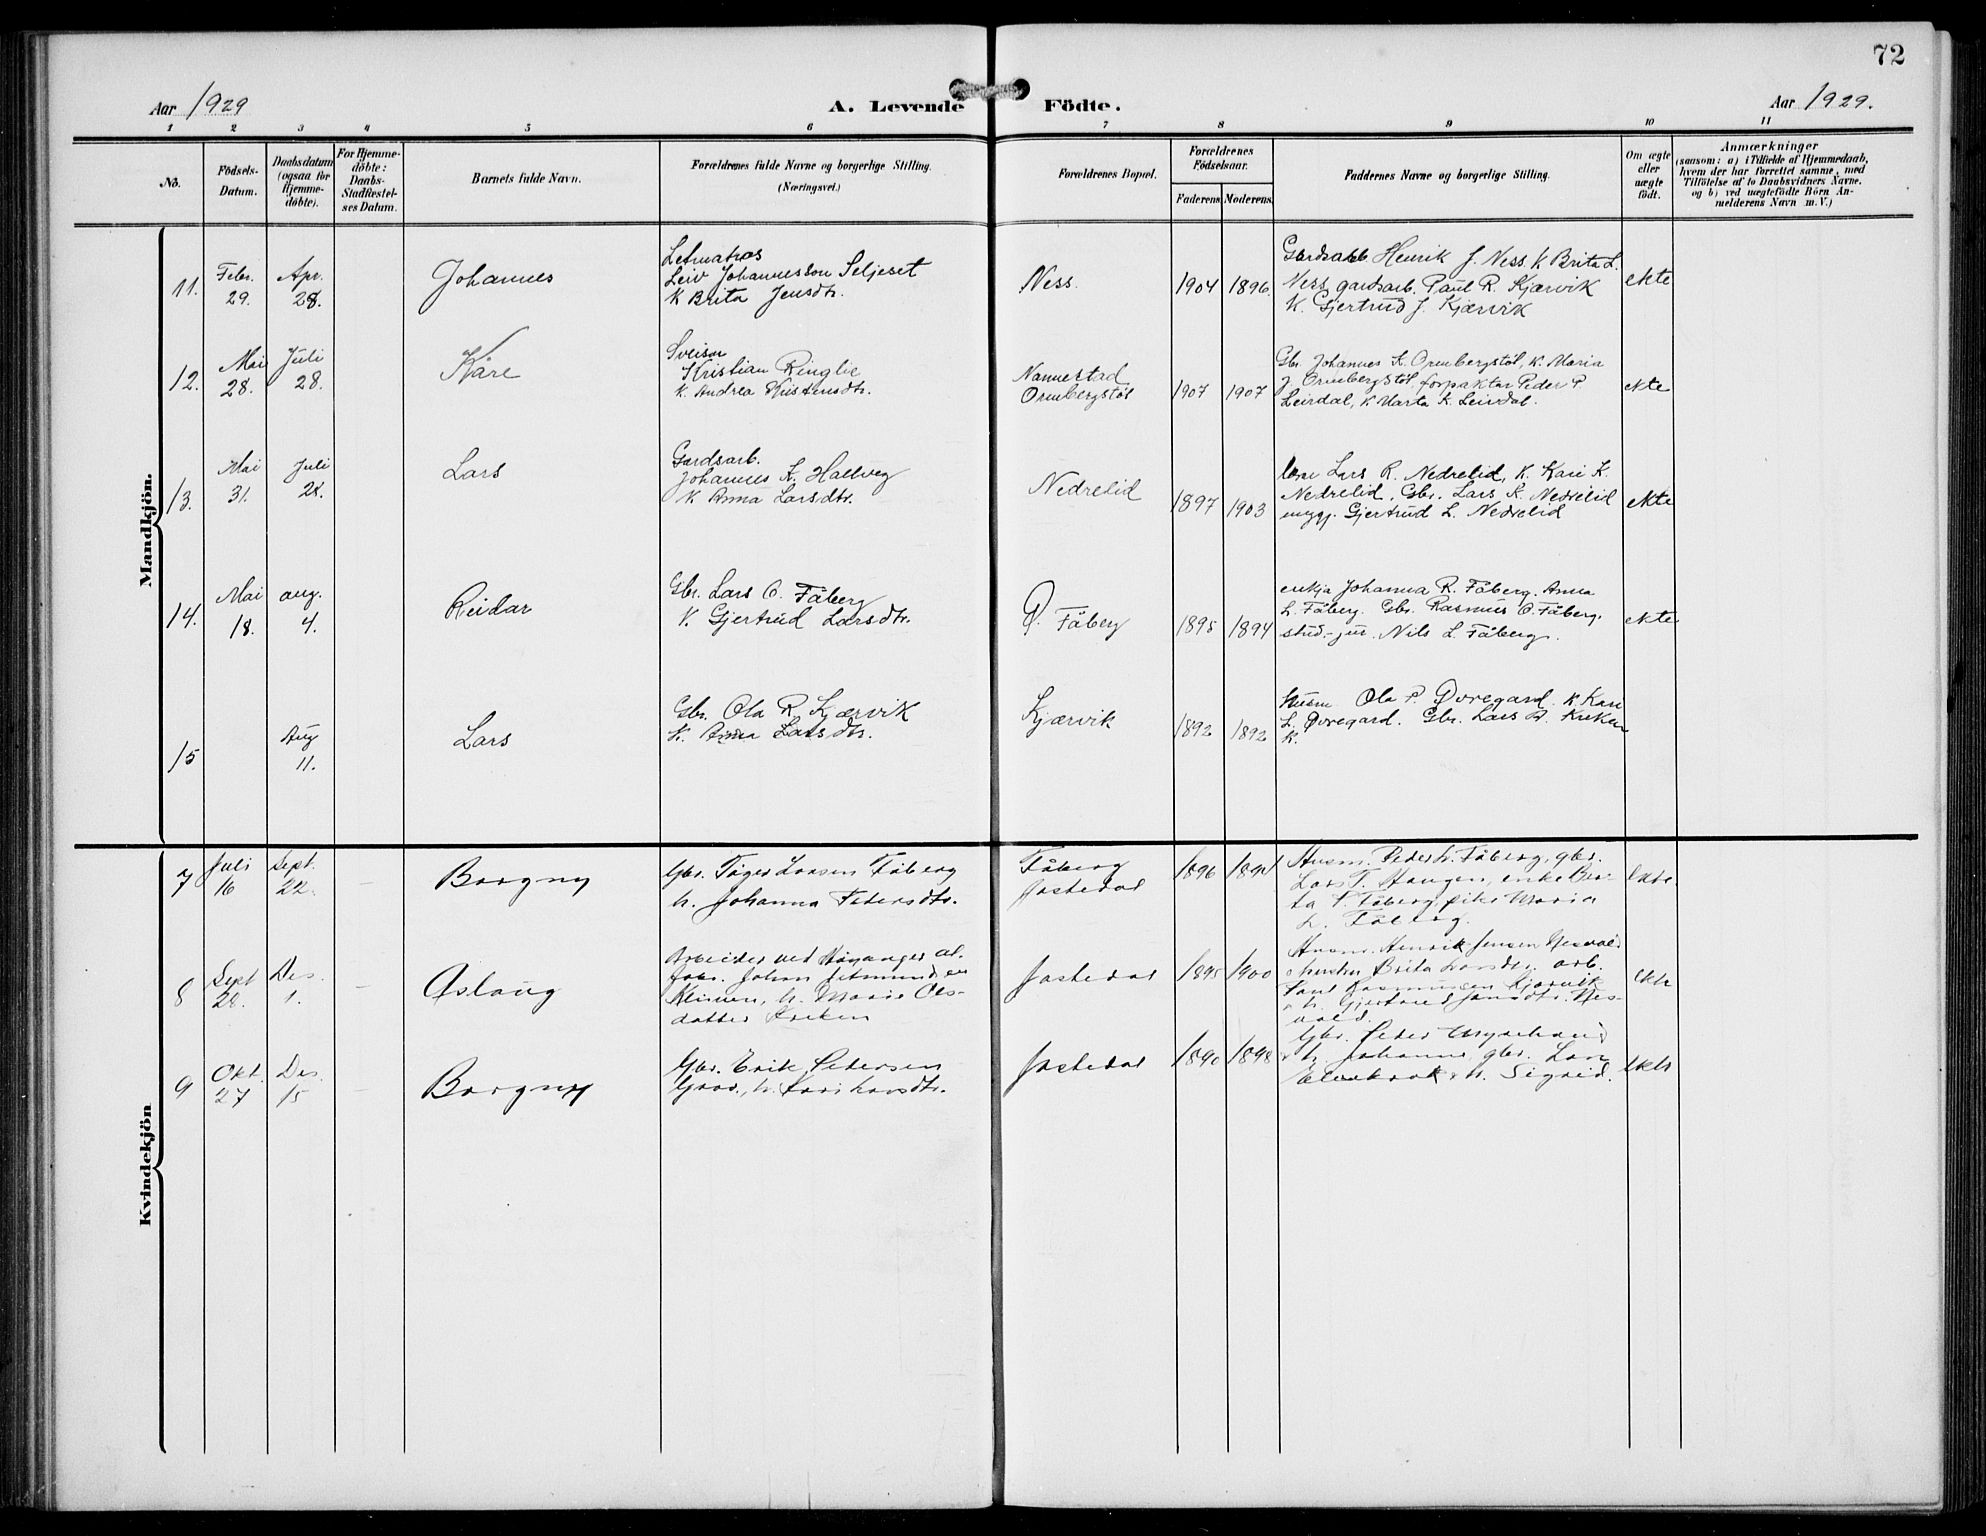 72
Aar 1929
A. Levende Födte.
Aar 1929.
1 2 3 4 5 6 7 8 9 10 11
No.
Födsels-Datum.
Daabsdatum (ogsaa for Hjemmedöbte).
For Hjemmedöbte: Daabs-Stadfæstelses Datum.
Barnets fulde Navn.
Forældrenes fulde Navne og borgerlige Stilling.
(Næringsvei.)
Forældrenes Bopæl.
Forældrenes Födselsaar.
Faderens. Moderens.
Faddernes Navne og borgerlige Stilling.
Om ægte eller uægte födt.
Anmærkninger
(saasom: a) i Tilfælde af Hjemmedaab,
hvem der har forrettet samme, med
Tilföielse af to Daabsvidners Navne,
og b) ved uægtefödte Börn Anmelderens Navn m. V.)
Mandkjön.
11.
Febr. 29.
Apr. 28.
Johannes
Leiv Johannesson Seljeset
K Brita Jensdtr.
Ness.
1904 1896.
Henrik J. Ness. K Brita L.
Ness gardsarb. Paul R. Kjærvik
K. Gjertrud J. Kjærvik
ekte
12.
Mai 28.
Juli 28.
Kåre
Kristian Ringlie
K. Andrea
Nannestad
Ormbergstöl
1907 1907
Gbr. Johannes K. Ormbergstöl, K. Maria
J. Ormbergstöl, forpaktar Peder P.
Leirdal, K Marta K. Leirdal.
ekte
13.
Mai 31.
Juli 28.
Lars
Gardsarb.
Johannes A.
K Anna Larsdtr.
Nedrelid
1897 1903
Lars R. Nedrelid, K. Kari K.
Nedrelid, Gbr. Lars K. Nedrelid
Gjertrud L. Nedrelid
ekte
14.
Mai 18.
aug. 4.
Reidar
Gbr. Lars O. Fåberg
K. Gjertrud Larsdtr.
Fåberg
1895 1894
enkja Johanna R. Fåberg. Anna
L. Fåberg. Gbr. Rasmus O. Fåberg,
stud. jur. Nils L. Fåberg.
ekte
15
Aug 11.
Lars
Gbr. Ola R. Kjærvik
K. Larsdtr.
Kjærvik
1892 1892
Husm Ola P. Övregard. K Kari
L. Övregard. Gbr. Lars
K.
Kvindekjön
7
Juli 16
Sept. 22.
Borgny
Gbr. Töger Larsen Fåberg
h. Johanna Pedersdtr.
Fåberg
Jostedal
1896 1894
Husm. Peder L. Fåberg, gbr.
Lars T. Haugen, enke Ber-
ta T. Fåberg, pike Maria
L. Fåberg.
ekte.
8
Sept 28.
Des. 1.
Aslaug
Arbeider ved Höyanger al.
fabr. Johan
h. Marie Ols-
datter Kreken
Jostedal
1895 1900
Husm. Henrik Jensen
hustru Brita Larsdtr, arb.
Paul Rasmussen Kjærvik
h. Gjertrud Jensdtr. Nes-
vold.
ekte
9
Okt. 27
Des. 15
Borgny
Gbr. Erik Pedersen
h. Kari Larsdtr.
Jostedal
1890 1898
Gbr. Peder
h. Johanne, gbr. Lars
h. Sigrid.
ekte